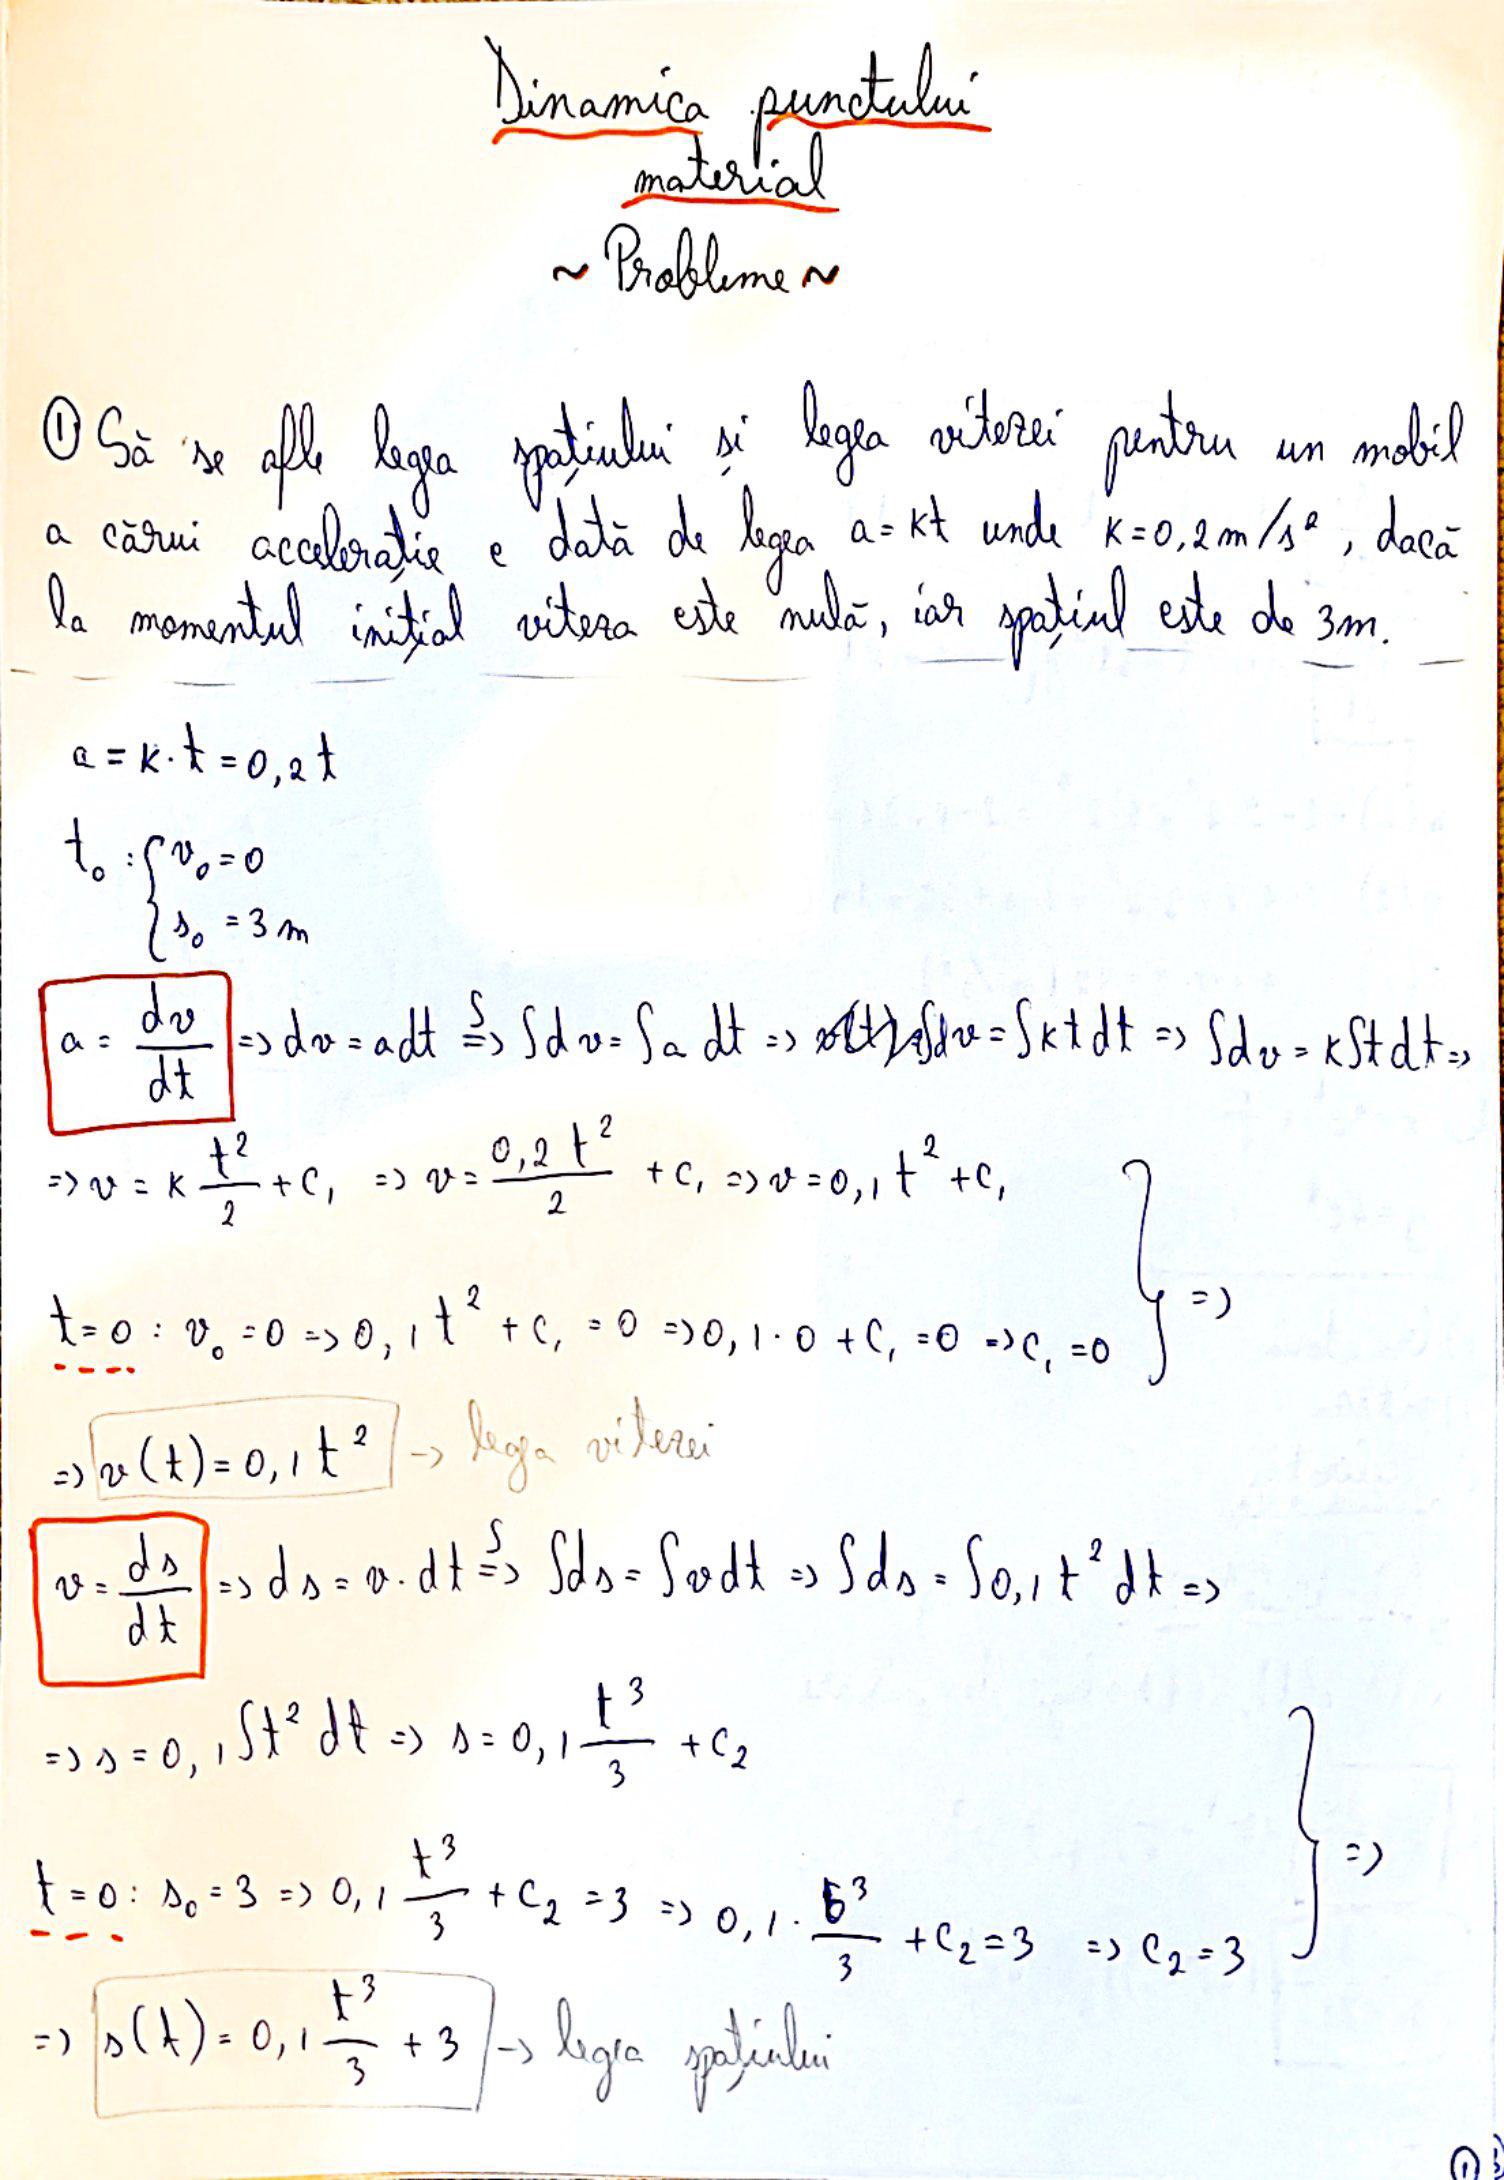 Dinamica punctului
material
~ Probleme ~
① Să se afle legea spațiului și legea vitezei pentru un mobil
a cărui accelerație e dată de legea a = kt unde k = 0,2 m/s², dacă
la momentul inițial viteza este nulă, iar spațiul este de 3m.
a = k·t = 0,2 t
t₀ : { v₀ = 0
s₀ = 3 m
a = dv/dt => dv = a dt =>(∫) ∫dv = ∫a dt => ∫dv = ∫kt dt => ∫dv = k∫t dt =>
=> v = k t²/2 + C₁ => v = 0,2 t²/2 + C₁ => v = 0,1 t² + C₁
t = 0 : v₀ = 0 => 0,1 t² + C₁ = 0 => 0,1·0 + C₁ = 0 => C₁ = 0 } =>
=> v(t) = 0,1 t² -> legea vitezei
v = ds/dt => ds = v·dt =>(∫) ∫ds = ∫v dt => ∫ds = ∫0,1 t² dt =>
=> s = 0,1 ∫t² dt => s = 0,1 t³/3 + C₂
t = 0 : s₀ = 3 => 0,1 t³/3 + C₂ = 3 => 0,1 · 0³/3 + C₂ = 3 => C₂ = 3 } =>
=> s(t) = 0,1 t³/3 + 3 -> legea spațiului
①